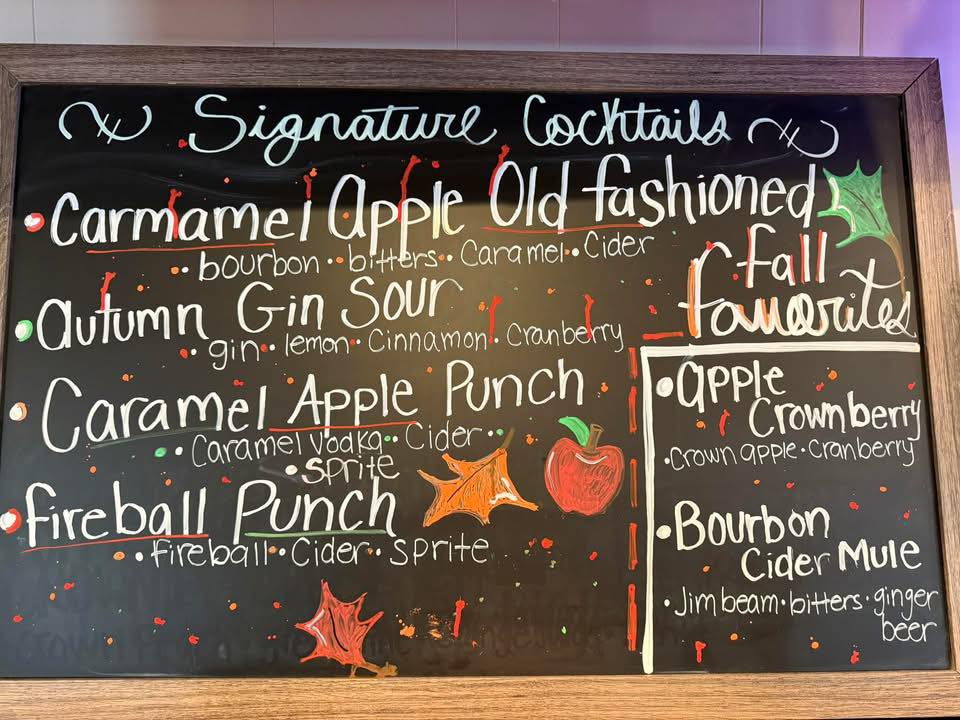 Signature Cocktails
Carmamel Apple Old fashioned
• bourbon • bitters • Caramel • Cider
Autumn Gin Sour
• gin • lemon • Cinnamon • Cranberry
Caramel Apple Punch
• Caramel Vodka • Cider •
• Sprite
fireball Punch
• fireball • Cider • Sprite
fall
favorites
• apple
Crownberry
• Crown apple • Cranberry
• Bourbon
Cider Mule
• Jim beam • bitters • ginger
beer